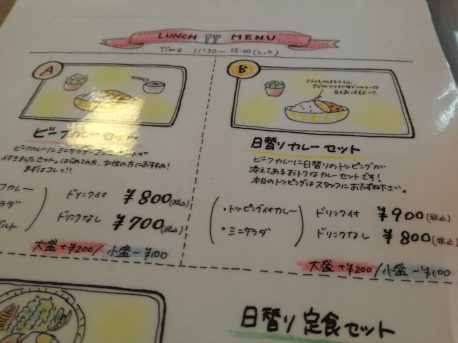 LUNCH MENU
Time 11:30~15:00(L.O)
A
ビーフカレーセット
まずはコレっ!!
ドリンク付 ¥800(税込)
ドリンクなし ¥700(税込)
大盛+¥200/小盛-¥100
B
日替りカレーセット
ビーフカレーに日替りのトッピングが
添えてあるおトクなカレーセットです!
本日のトッピングはスタッフにおたずね下さい。
・トッピング付カレー
・ミニサラダ
ドリンク付 ¥900(税込)
ドリンクなし ¥800(税込)
大盛+¥200/小盛-¥100
日替り定食セット